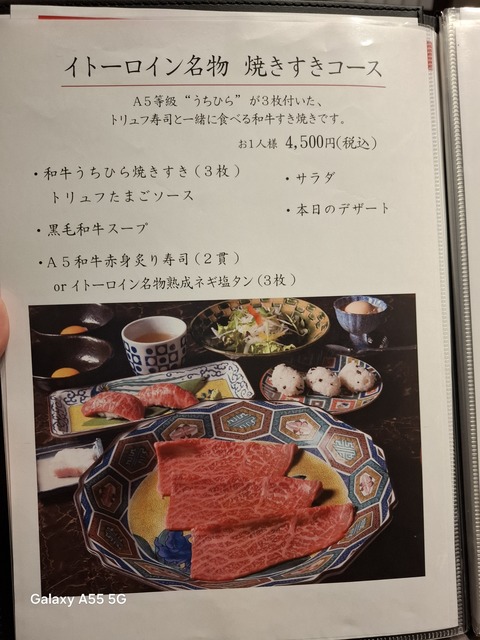 イトーロイン名物 焼きすきコース
A5等級“うちひら”が3枚付いた、
トリュフ寿司と一緒に食べる和牛すき焼きです。
お1人様 4,500円(税込)
・和牛うちひら焼きすき(3枚)
トリュフたまごソース
・黒毛和牛スープ
・A5和牛赤身炙り寿司(2貫)
or イトーロイン名物熟成ネギ塩タン(3枚)
・サラダ
・本日のデザート
Galaxy A55 5G